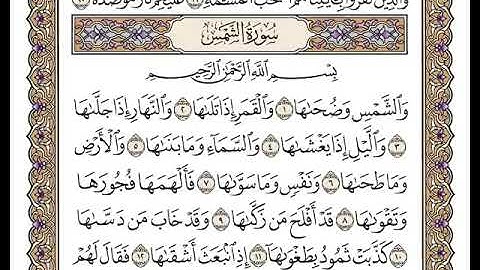 وَالَّذِينَ كَفَرُوا۟ بِـَٔايَـٰتِنَا هُمْ أَصْحَـٰبُ ٱلْمَشْـَٔمَةِ ١٩ عَلَيْهِمْ نَارٌ مُّؤْصَدَةٌۢ ٢٠
سُورَةُ الشَّمْسِ
بِسْمِ ٱللَّهِ ٱلرَّحْمَـٰنِ ٱلرَّحِيمِ
وَٱلشَّمْسِ وَضُحَىٰهَا ١ وَٱلْقَمَرِ إِذَا تَلَىٰهَا ٢ وَٱلنَّهَارِ إِذَا جَلَّىٰهَا
٣ وَٱلَّيْلِ إِذَا يَغْشَىٰهَا ٤ وَٱلسَّمَآءِ وَمَا بَنَىٰهَا ٥ وَٱلْأَرْضِ
وَمَا طَحَىٰهَا ٦ وَنَفْسٍ وَمَا سَوَّىٰهَا ٧ فَأَلْهَمَهَا فُجُورَهَا
وَتَقْوَىٰهَا ٨ قَدْ أَفْلَحَ مَن زَكَّىٰهَا ٩ وَقَدْ خَابَ مَن دَسَّىٰهَا
١٠ كَذَّبَتْ ثَمُودُ بِطَغْوَىٰهَآ ١١ إِذِ ٱنۢبَعَثَ أَشْقَىٰهَا ١٢ فَقَالَ لَهُمْ